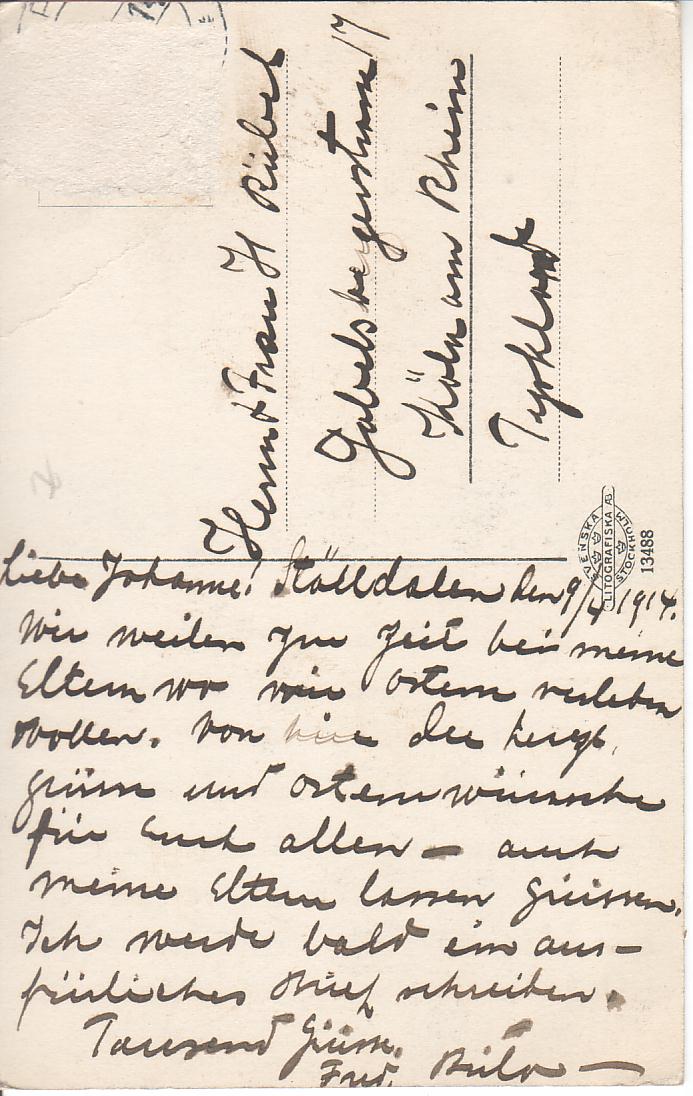 Herrn & Frau H Rübel
Gabelsbergerstrasse 17
Köln am Rhein
Tyskland
SVENSKA LITOGRAFISKA AB STOCKHOLM
13488
Liebe Johanne! Ställdalen den 9/4 1914.
Wir weilen zur Zeit bei meine
Eltern wo wir ostern verleben
wollen. Von hier die herzl.
grüsse und ostern wünsche
für Euch allen – auch
meine Eltern lassen grüssen.
Ich werde bald ein aus-
fürliches Brief schreiben.
Tausend Grüsse.
Fred.